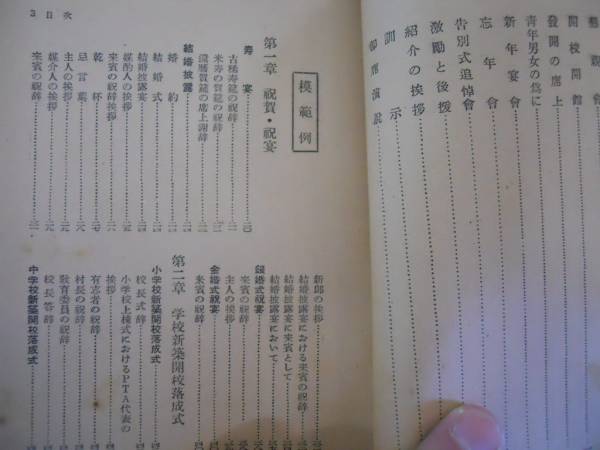 懇親會
開校開館
發聞の席上
青年男女の爲に
新年宴會
忘年會
告別式追悼會
激勵と後援
紹介の挨拶
訓示
卽席演説
3 目次
模範例
第一章 祝賀・祝宴
寿宴
古稀寿筵の祝辞
米寿の賀筵の祝辞
還暦賀筵の席上謝辞
結婚披露
婚約
結婚式
結婚披露宴
媒酌人の挨拶
来賓の祝辞挨拶
乾杯
忌言葉
主人の挨拶
媒介人の挨拶
来賓の祝辞
新郎の挨拶
結婚披露宴における来賓の祝辞
結婚披露宴に来賓として
結婚披露宴において
銀婚式祝宴
来賓の祝辞
主人の挨拶
金婚式祝宴
来賓の祝辞
第二章 学校新築開校落成式
小学校新築開校落成式
校長式辞
小学校上棟式におけるPTA代表の
挨拶
有志者の祝辞
村長の祝辞
教育委員の祝辞
校長答辞
中学校新築開校落成式